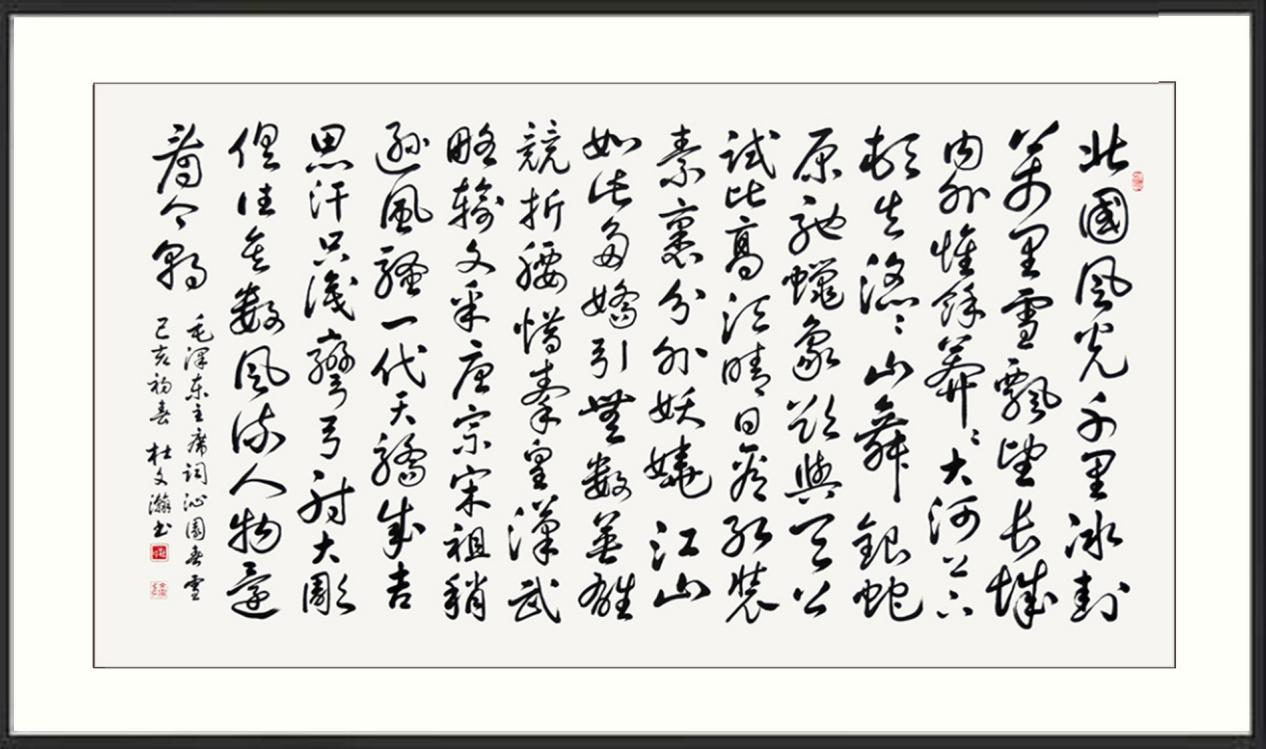 北國風光千里冰封
萬里雪飄望长城
内外惟餘莽〻大河上下
頓失滔〻山舞銀蛇
原馳蠟象欲與天公
試比高須晴日看红装
素裹分外妖娆江山
如此多嬌引無數英雄
競折腰惜秦皇漢武
略輸文采唐宗宋祖稍
遜風騷一代天驕成吉
思汗只識彎弓射大雕
俱往矣數風流人物還
看今朝
毛澤东主席词沁園春雪
己亥初春 杜文瀚书